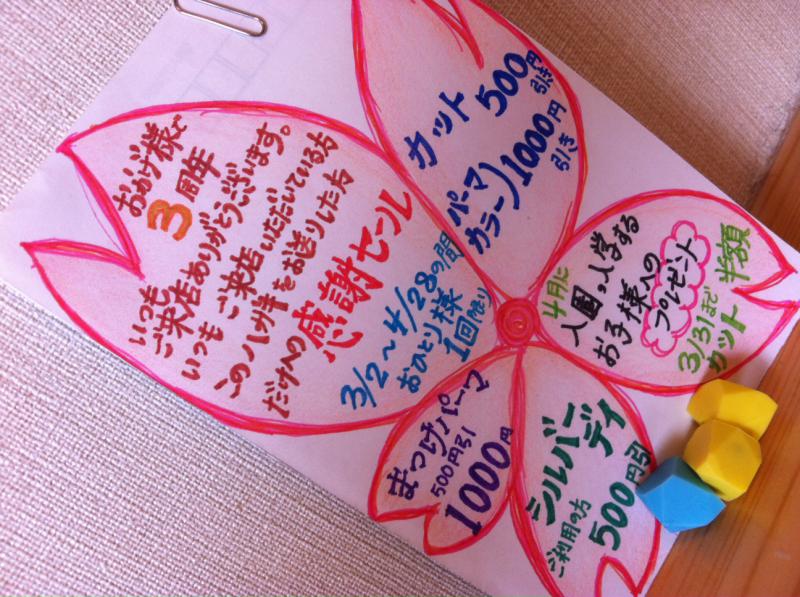 おかげ様で
3周年
いつも
ご来店ありがとうございます。
いつも ご来店いただいている方
このハガキをお送りした方
だけへの 感謝セール
3/2〜4/28の間
おひとり様
1回限り
カット 500円引き
パーマ
カラー) 1000円引き
4月に
入園・入学する
お子様への
プレゼント
3/31まで
カット 半額
まつげパーマ
500円引
1000円
シルバーデイ
ご利用の方
500円引